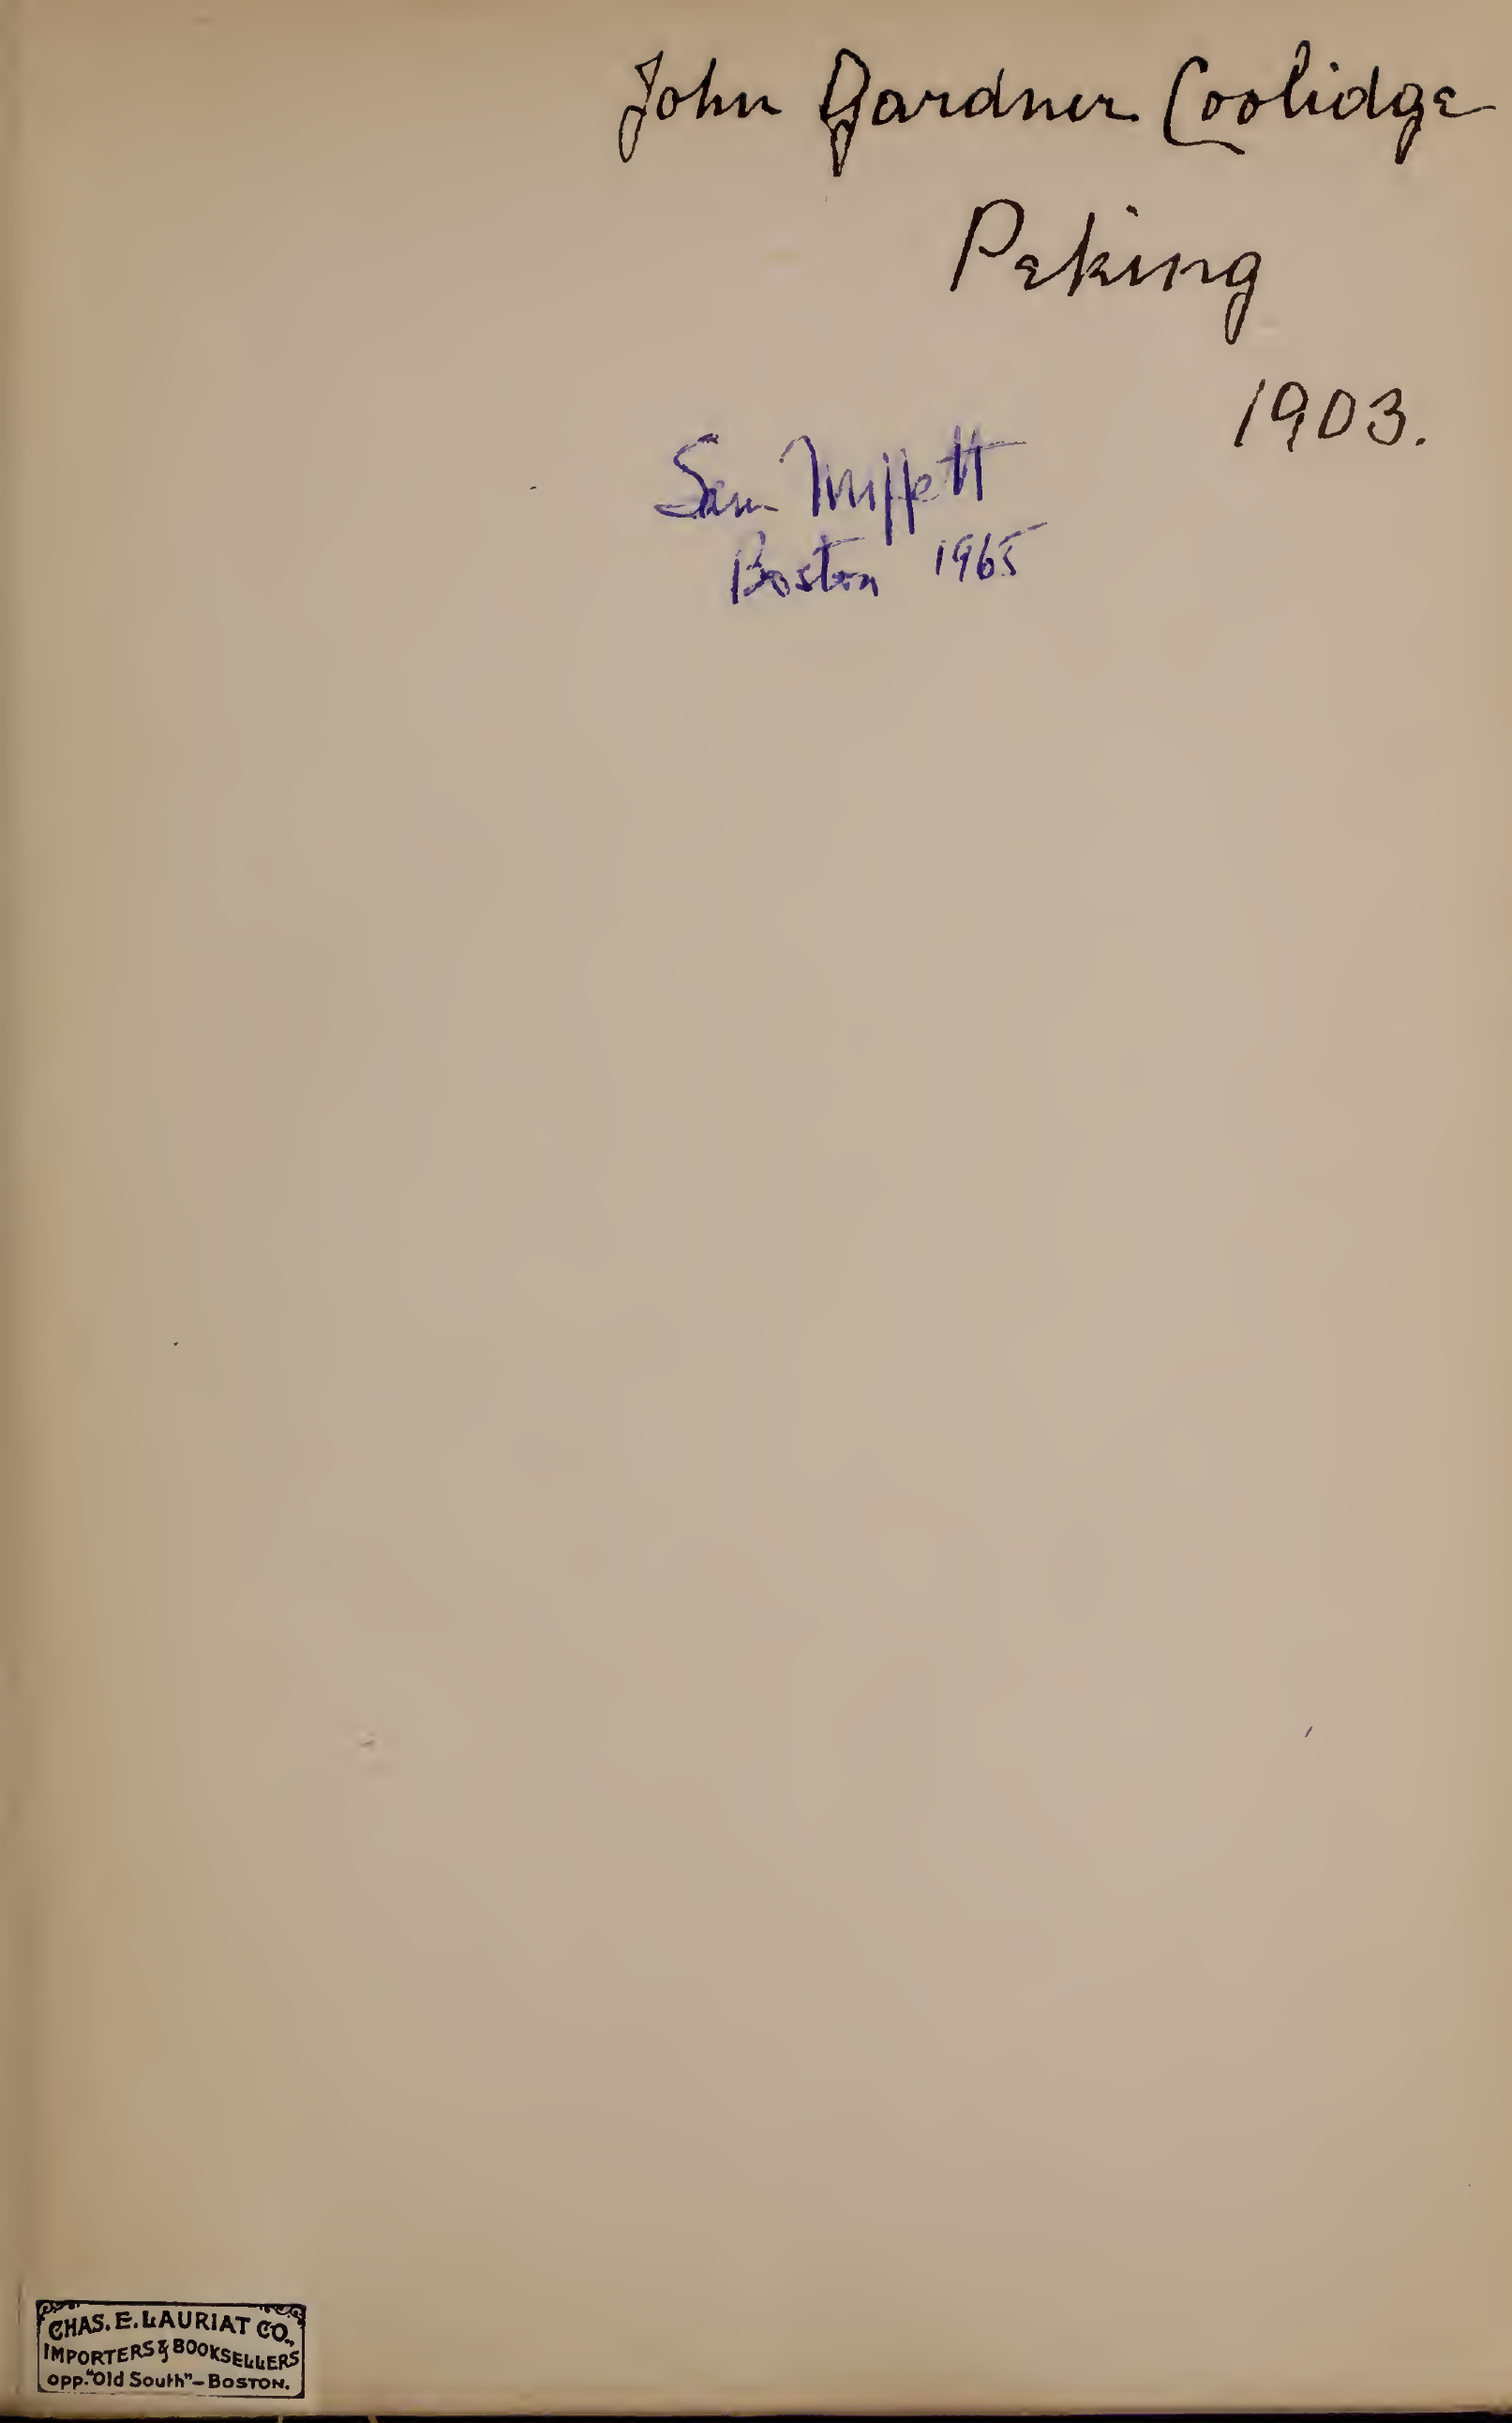 John Gardner Coolidge
Peking
1903.
Sam Moffett
Boston 1965
CHAS. E. LAURIAT CO.,
IMPORTERS & BOOKSELLERS
opp. "Old South" – BOSTON.